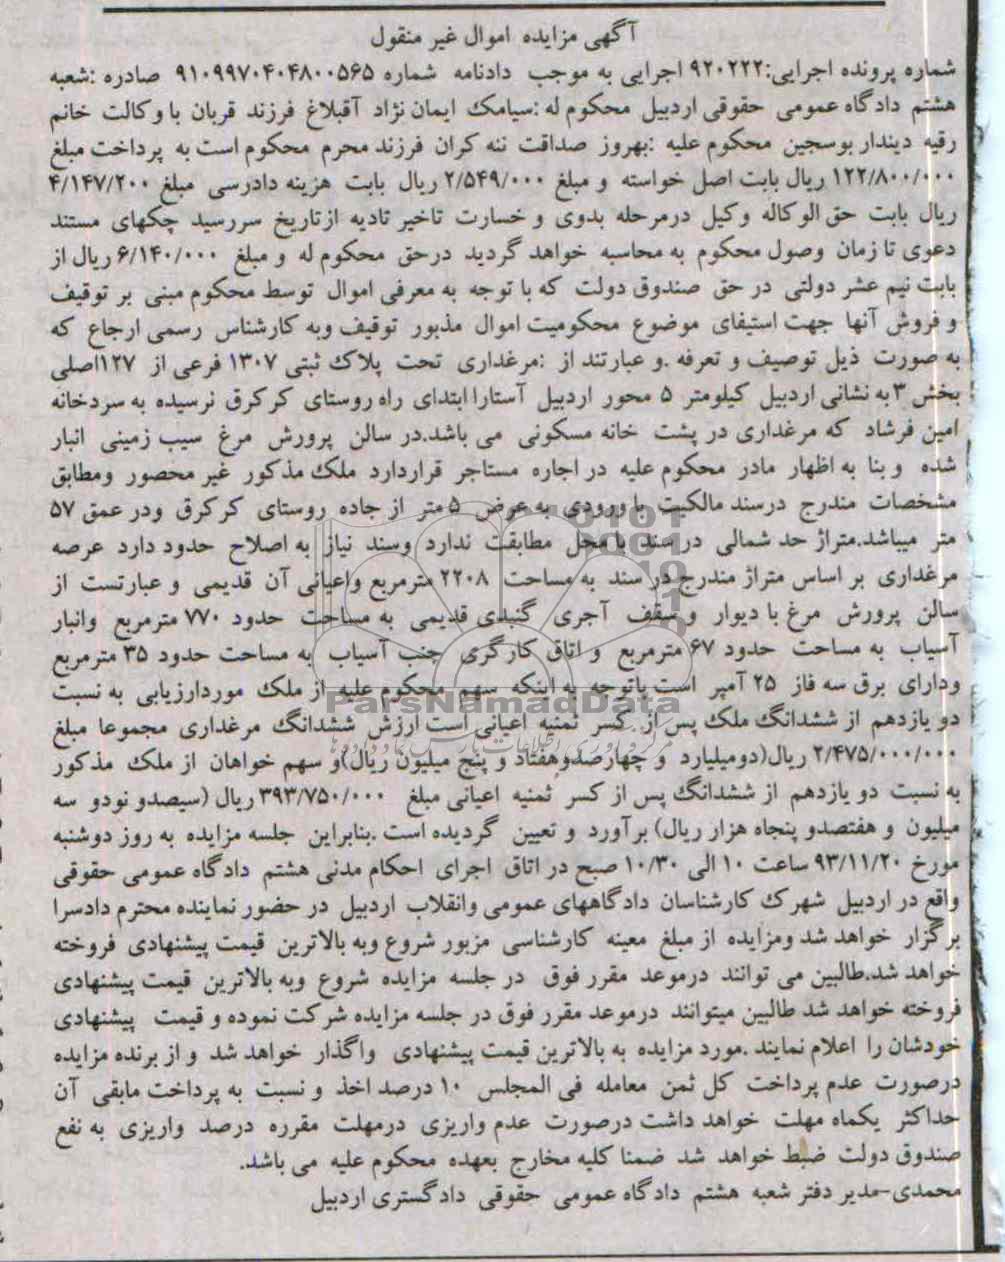 آگهی مزایده اموال غیر منقول
شماره پرونده اجرایی:۹۲۰۲۲۲ اجرایی به موجب دادنامه شماره ۹۱۰۹۹۷۰۴۰۴۸۰۰۵۶۵ صادره :شعبه
هشتم دادگاه عمومی حقوقی اردبیل محکوم له :سیامک ایمان نژاد آقبلاغ فرزند قربان با وکالت خانم
رقیه دیندار بوسجین محکوم علیه :بهروز صداقت ننه کران فرزند محرم محکوم است به پرداخت مبلغ
۱۲۲/۸۰۰/۰۰۰ ریال بابت اصل خواسته و مبلغ ۲/۵۴۹/۰۰۰ ریال بابت هزینه دادرسی مبلغ ۴/۱۴۷/۲۰۰
ریال بابت حق الوکاله وکیل درمرحله بدوی و خسارت تاخیر تادیه ازتاریخ سررسید چکهای مستند
دعوی تا زمان وصول محکوم به محاسبه خواهد گردید درحق محکوم له و مبلغ ۶/۱۴۰/۰۰۰ ریال از
بابت نیم عشر دولتی در حق صندوق دولت که با توجه به معرفی اموال توسط محکوم مبنی بر توقیف
و فروش آنها جهت استیفای موضوع محکومیت اموال مذبور توقیف وبه کارشناس رسمی ارجاع که
به صورت ذیل توصیف و تعرفه .و عبارتند از :مرغداری تحت پلاک ثبتی ۱۳۰۷ فرعی از ۱۲۷اصلی
بخش ۳ به نشانی اردبیل کیلومتر ۵ محور اردبیل آستارا ابتدای راه روستای کرکرق نرسیده به سردخانه
امین فرشاد که مرغداری در پشت خانه مسکونی می باشد.در سالن پرورش مرغ سیب زمینی انبار
شده و بنا به اظهار مادر محکوم علیه در اجاره مستاجر قراردارد ملک مذکور غیر محصور ومطابق
مشخصات مندرج درسند مالکیت با ورودی به عرض ۵ متر از جاده روستای کرکرق ودر عمق ۵۷
متر میباشد.متراژ حد شمالی در سند با محل مطابقت ندارد وسند نیاز به اصلاح حدود دارد عرصه
مرغداری بر اساس متراژ مندرج در سند به مساحت ۲۲۰۸ مترمربع واعیانی آن قدیمی و عبارتست از
سالن پرورش مرغ با دیوار و سقف آجری گنبدی قدیمی به مساحت حدود ۷۷۰ مترمربع وانبار
آسیاب به مساحت حدود ۶۷ مترمربع و اتاق کارگری جنب آسیاب به مساحت حدود ۳۵ مترمربع
ودارای برق سه فاز ۲۵ آمپر است باتوجه به اینکه سهم محکوم علیه از ملک موردارزیابی به نسبت
ParsNamadData
دو یازدهم از ششدانگ ملک پس از کسر ثمنیه اعیانی است ارزش ششدانگ مرغداری مجموعا مبلغ
۲/۴۷۵/۰۰۰/۰۰۰ ریال(دومیلیارد و چهارصدوهفتاد و پنج میلیون ریال)و سهم خواهان از ملک مذکور
به نسبت دو یازدهم از ششدانگ پس از کسر ثمنیه اعیانی مبلغ ۳۹۳/۷۵۰/۰۰۰ ریال (سیصدو نودو سه
میلیون و هفتصدو پنجاه هزار ریال) برآورد و تعیین گردیده است .بنابراین جلسه مزایده به روز دوشنبه
مورخ ۹۳/۱۱/۲۰ ساعت ۱۰ الی ۱۰/۳۰ صبح در اتاق اجرای احکام مدنی هشتم دادگاه عمومی حقوقی
واقع در اردبیل شهرک کارشناسان دادگاههای عمومی وانقلاب اردبیل در حضور نماینده محترم دادسرا
برگزار خواهد شد ومزایده از مبلغ معینه کارشناسی مزبور شروع وبه بالاترین قیمت پیشنهادی فروخته
خواهد شد.طالبین می توانند درموعد مقرر فوق در جلسه مزایده شروع وبه بالاترین قیمت پیشنهادی
فروخته خواهد شد طالبین میتوانند درموعد مقرر فوق در جلسه مزایده شرکت نموده و قیمت پیشنهادی
خودشان را اعلام نمایند .مورد مزایده به بالاترین قیمت پیشنهادی واگذار خواهد شد و از برنده مزایده
درصورت عدم پرداخت کل ثمن معامله فی المجلس ۱۰ درصد اخذ و نسبت به پرداخت مابقی آن
حداکثر یکماه مهلت خواهد داشت درصورت عدم واریزی درمهلت مقرره درصد واریزی به نفع
صندوق دولت ضبط خواهد شد ضمنا کلیه مخارج بعهده محکوم علیه می باشد.
محمدی-مدیر دفتر شعبه هشتم دادگاه عمومی حقوقی دادگستری اردبیل